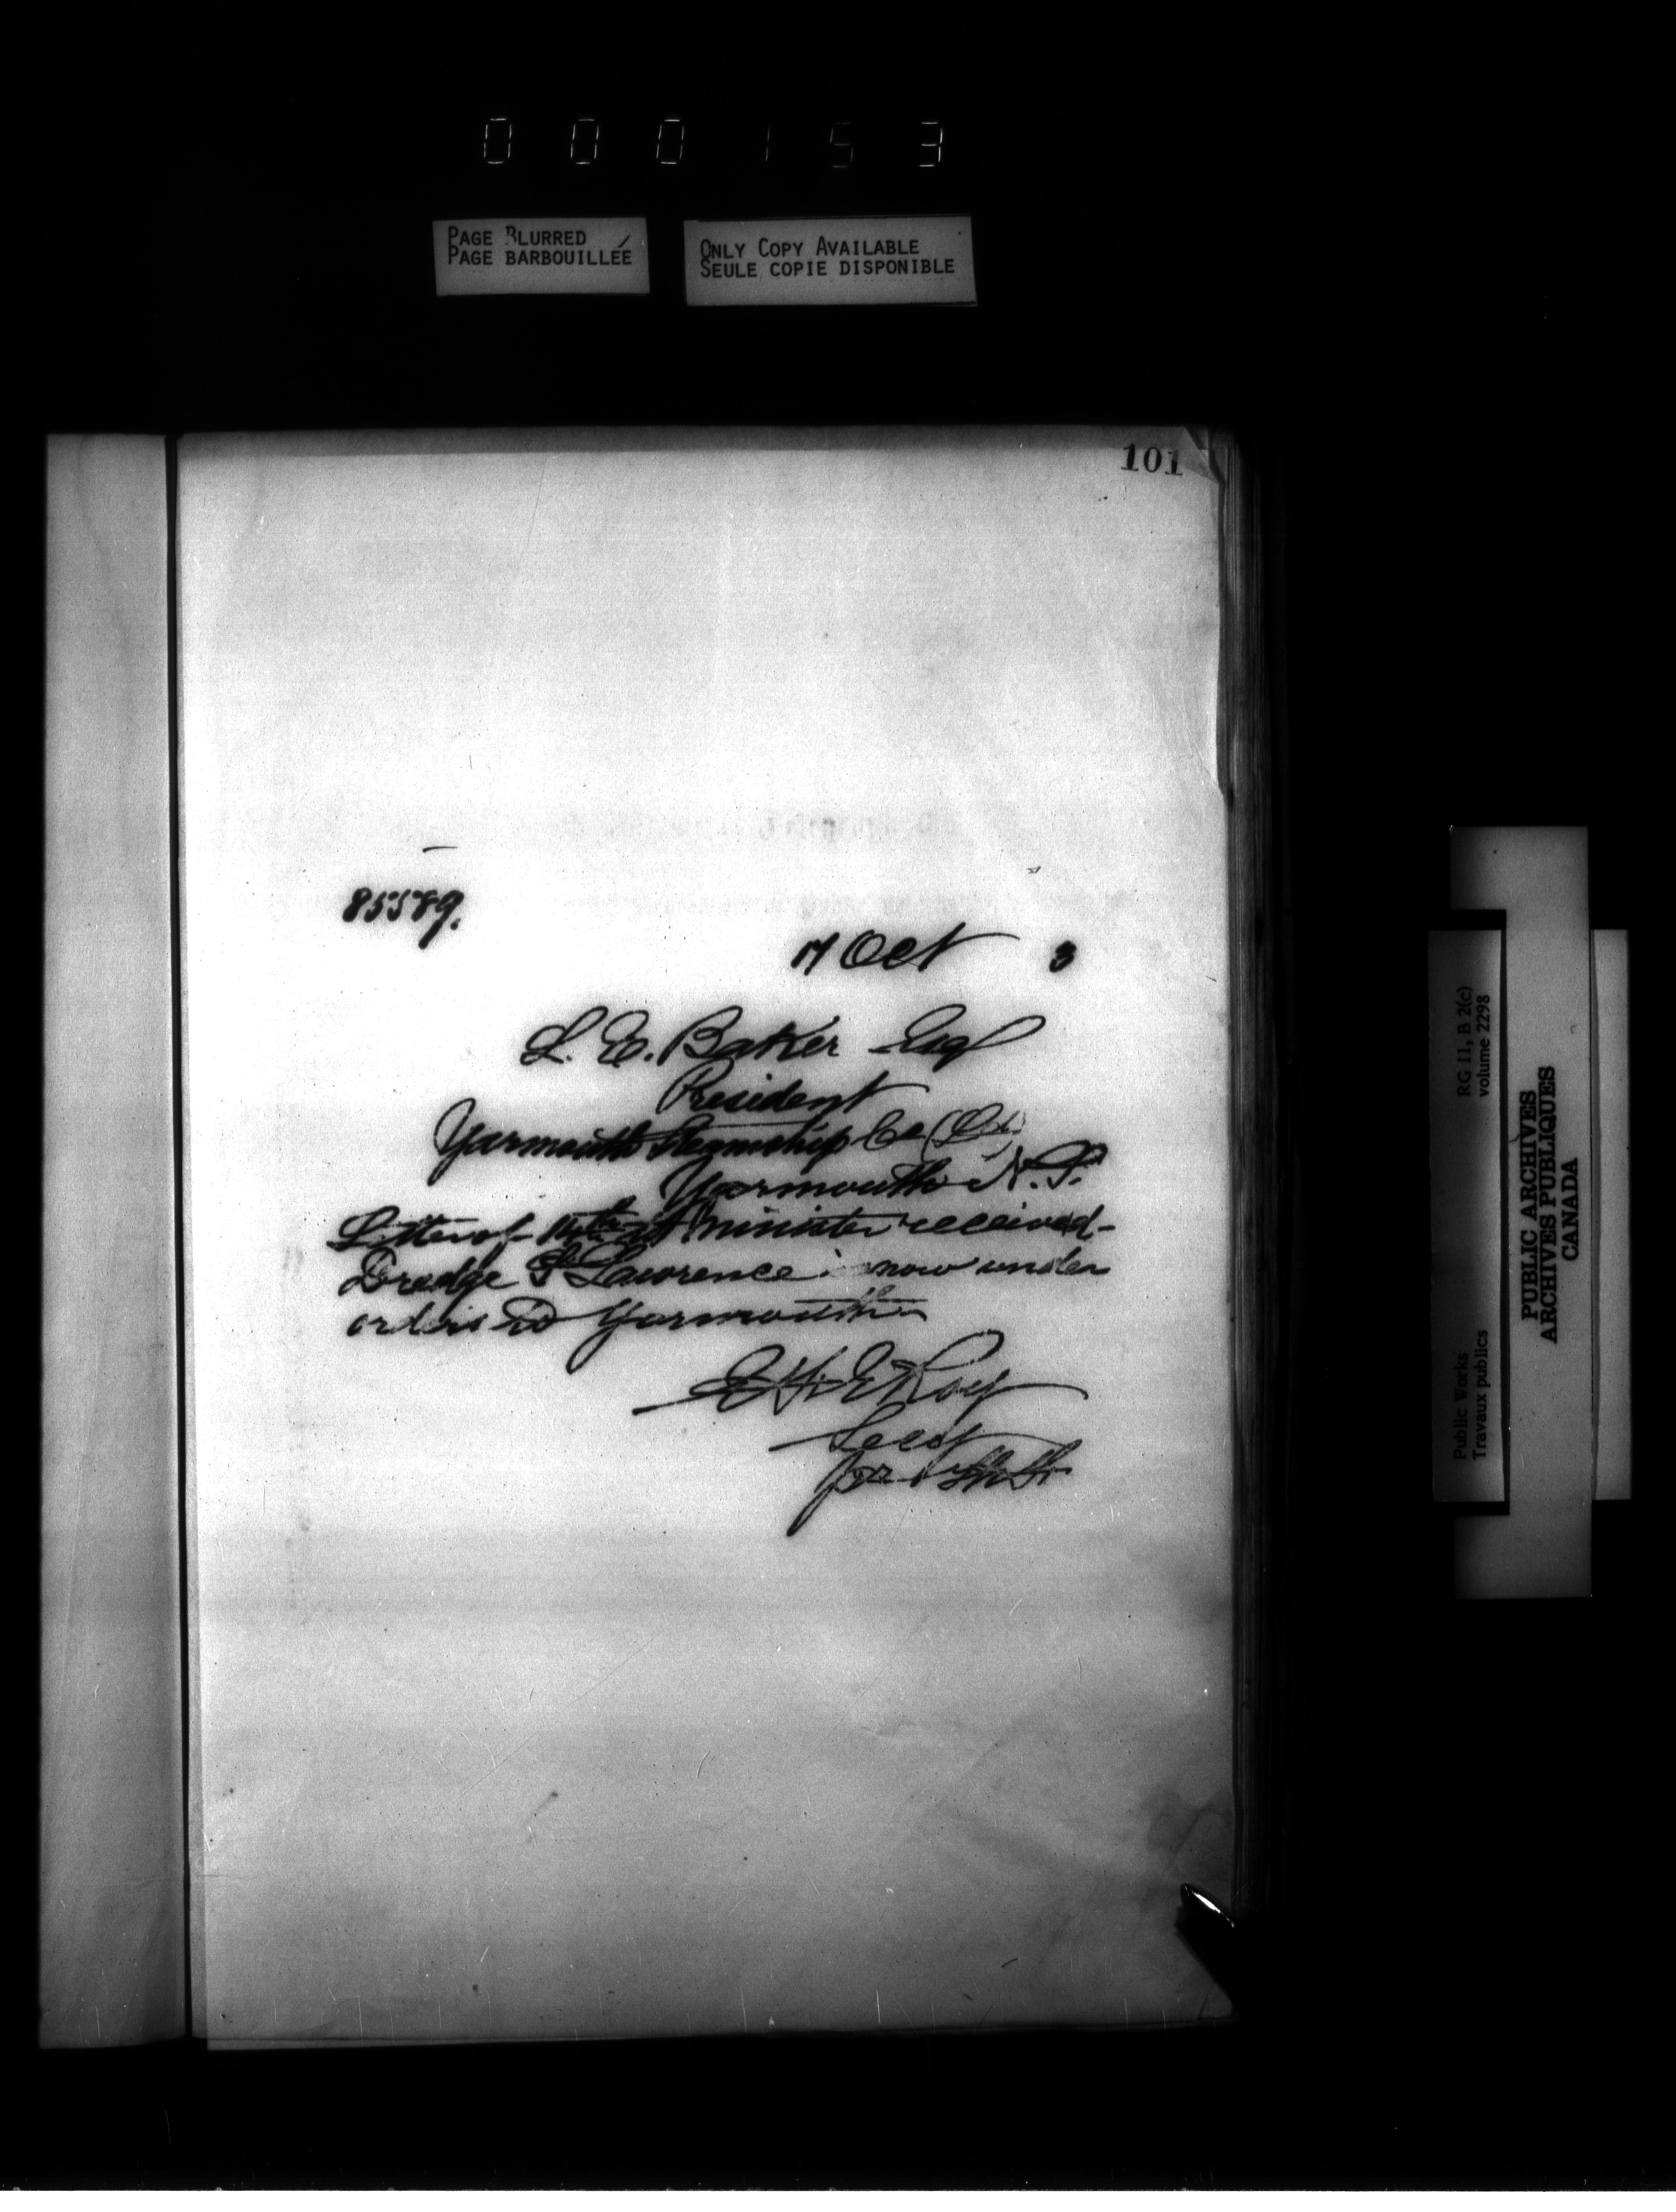 0 0 0 1 5 3
PAGE BLURRED
PAGE BARBOUILLÉE
ONLY COPY AVAILABLE
SEULE COPIE DISPONIBLE
101
85589.
17 Oct 3
L. E. Baker Esq
President
Yarmouth Steamship Co (Ld)
Yarmouth N.S.
Letter of to Minister received-
Dredge St Lawrence is now under
orders to Yarmouth
E H E Roy
Secy
RG 11, B 2(c)
volume 2298
Public Works
Travaux publics
PUBLIC ARCHIVES
ARCHIVES PUBLIQUES
CANADA